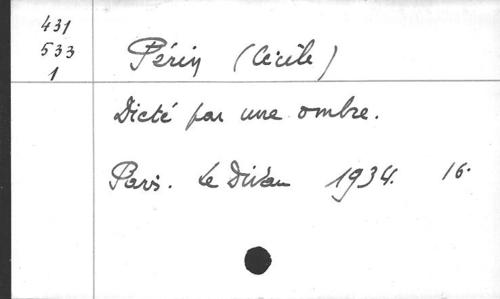 431
533
1
Périn (Cécile)
Dicté par une ombre.
Paris. Le Divan 1934. 16.